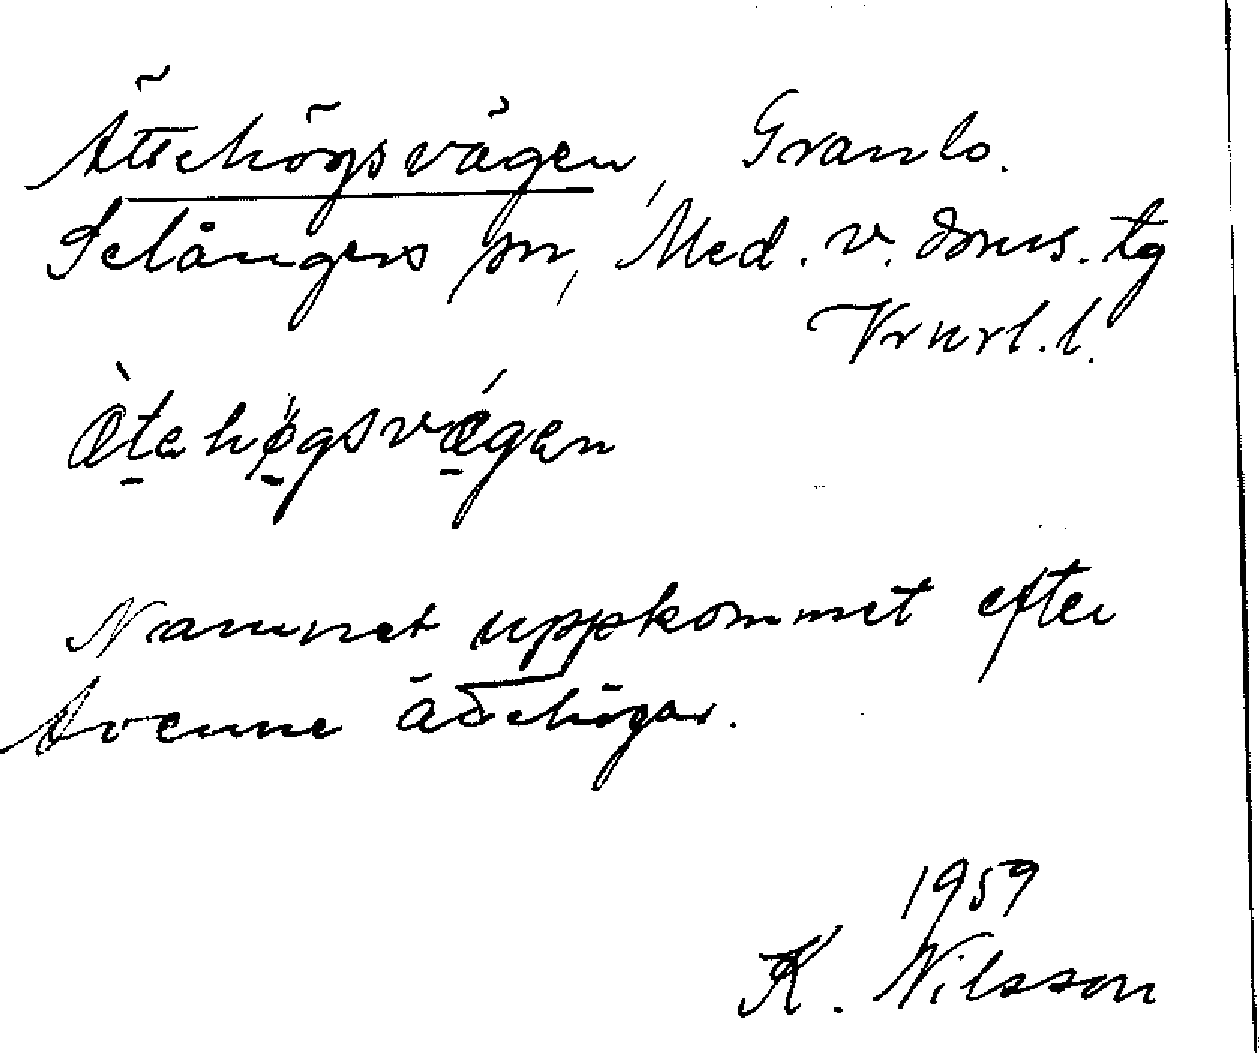 Ättehögsvägen, Granlo.
Selångers sn, Med. v. doms. tg
Vnrl. l.
ætehøgsvægen
Namnet uppkommet efter
tvenne ättehögar.
1959
K. Nilsson